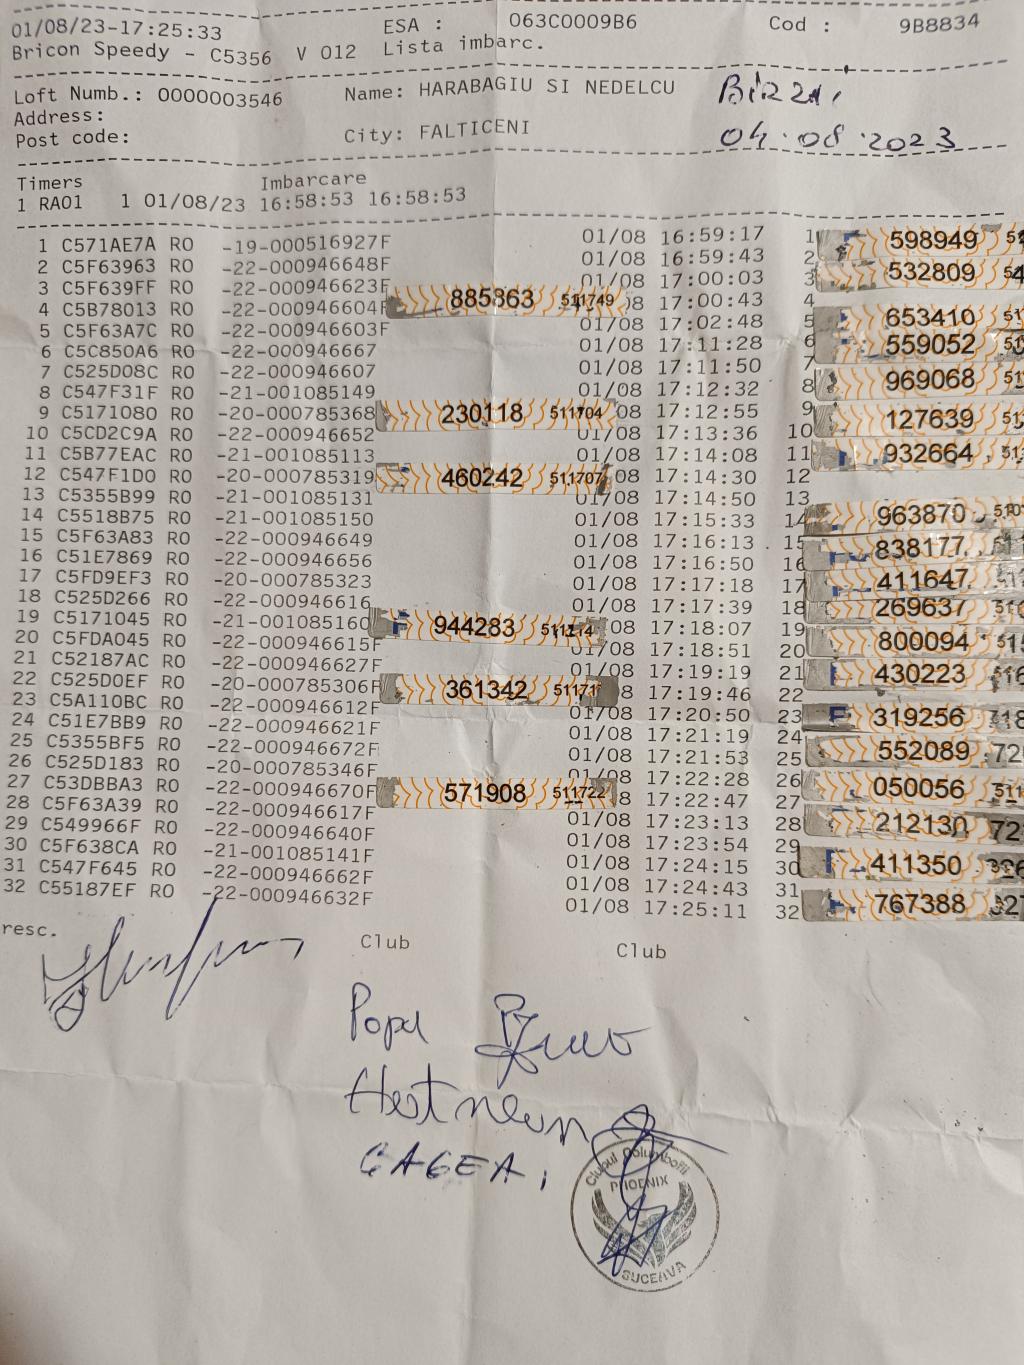 01/08/23-17:25:33 ESA : 063C0009B6 Cod : 9B8834
Bricon Speedy - C5356 V 012 Lista imbarc.
Loft Numb.: 0000003546 Name: HARABAGIU SI NEDELCU
Address:
Post code: City: FALTICENI 04.08.2023
Timers Imbarcare
1 RA01 1 01/08/23 16:58:53 16:58:53
1 C571AE7A RO -19-000516927F 01/08 16:59:17 1 598949
2 C5F63963 RO -22-000946648F 01/08 16:59:43 2 532809
3 C5F639FF RO -22-000946623F 01/08 17:00:03 3
4 C5B78013 RO -22-000946604F 885863 511749 08 17:00:43 4 653410
5 C5F63A7C RO -22-000946603F 01/08 17:02:48 5
6 C5C850A6 RO -22-000946667 01/08 17:11:28 6 559052
7 C525D08C RO -22-000946607 01/08 17:11:50 7
8 C547F31F RO -21-001085149 01/08 17:12:32 8 969068
9 C5171080 RO -20-000785368 230118 511704 08 17:12:55 9 127639
10 C5CD2C9A RO -22-000946652 01/08 17:13:36 10
11 C5B77EAC RO -21-001085113 01/08 17:14:08 11 932664
12 C547F1D0 RO -20-000785319 460242 511707 08 17:14:30 12
13 C5355B99 RO -21-001085131 01/08 17:14:50 13
14 C5518B75 RO -21-001085150 01/08 17:15:33 14 963870
15 C5F63A83 RO -22-000946649 01/08 17:16:13 15 838177
16 C51E7869 RO -22-000946656 01/08 17:16:50 16
17 C5FD9EF3 RO -20-000785323 01/08 17:17:18 17 411647
18 C525D266 RO -22-000946616 01/08 17:17:39 18 269637
19 C5171045 RO -21-001085160 944283 08 17:18:07 19
20 C5FDA045 RO -22-000946615F 01/08 17:18:51 20 800094
21 C52187AC RO -22-000946627F 01/08 17:19:19 21 430223
22 C525D0EF RO -20-000785306F 361342 51171 8 17:19:46 22
23 C5A110BC RO -22-000946612F 01/08 17:20:50 23 319256
24 C51E7BB9 RO -22-000946621F 01/08 17:21:19 24
25 C5355BF5 RO -22-000946672F 01/08 17:21:53 25 552089
26 C525D183 RO -20-000785346F 01/08 17:22:28 26 050056
27 C53DBBA3 RO -22-000946670F 571908 511722 8 17:22:47 27
28 C5F63A39 RO -22-000946617F 01/08 17:23:13 28 212130
29 C549966F RO -22-000946640F 01/08 17:23:54 29
30 C5F638CA RO -21-001085141F 01/08 17:24:15 30 411350
31 C547F645 RO -22-000946662F 01/08 17:24:43 31
32 C55187EF RO -22-000946632F 01/08 17:25:11 32 767388
resc. Club Club
Popa
GAGEA
Clubul Columbofil
PHOENIX
SUCEAVA